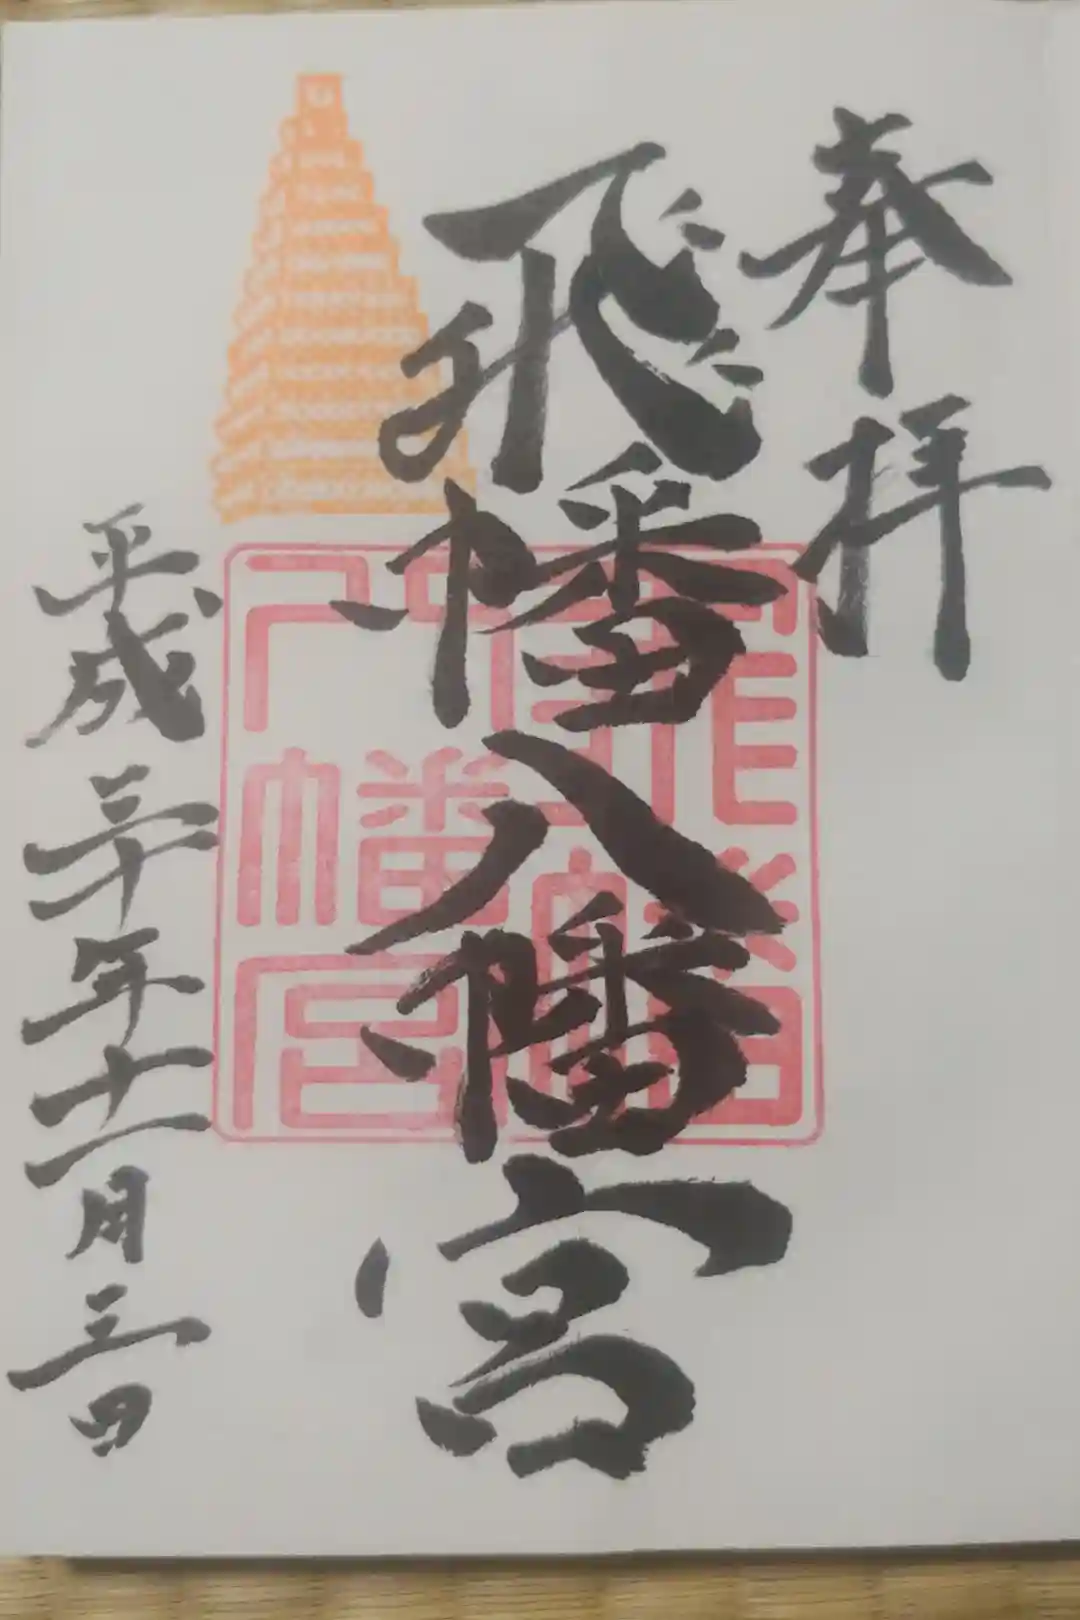 奉拝
飛幡八幡宮
飛幡八幡宮
平成三十年十一月三日